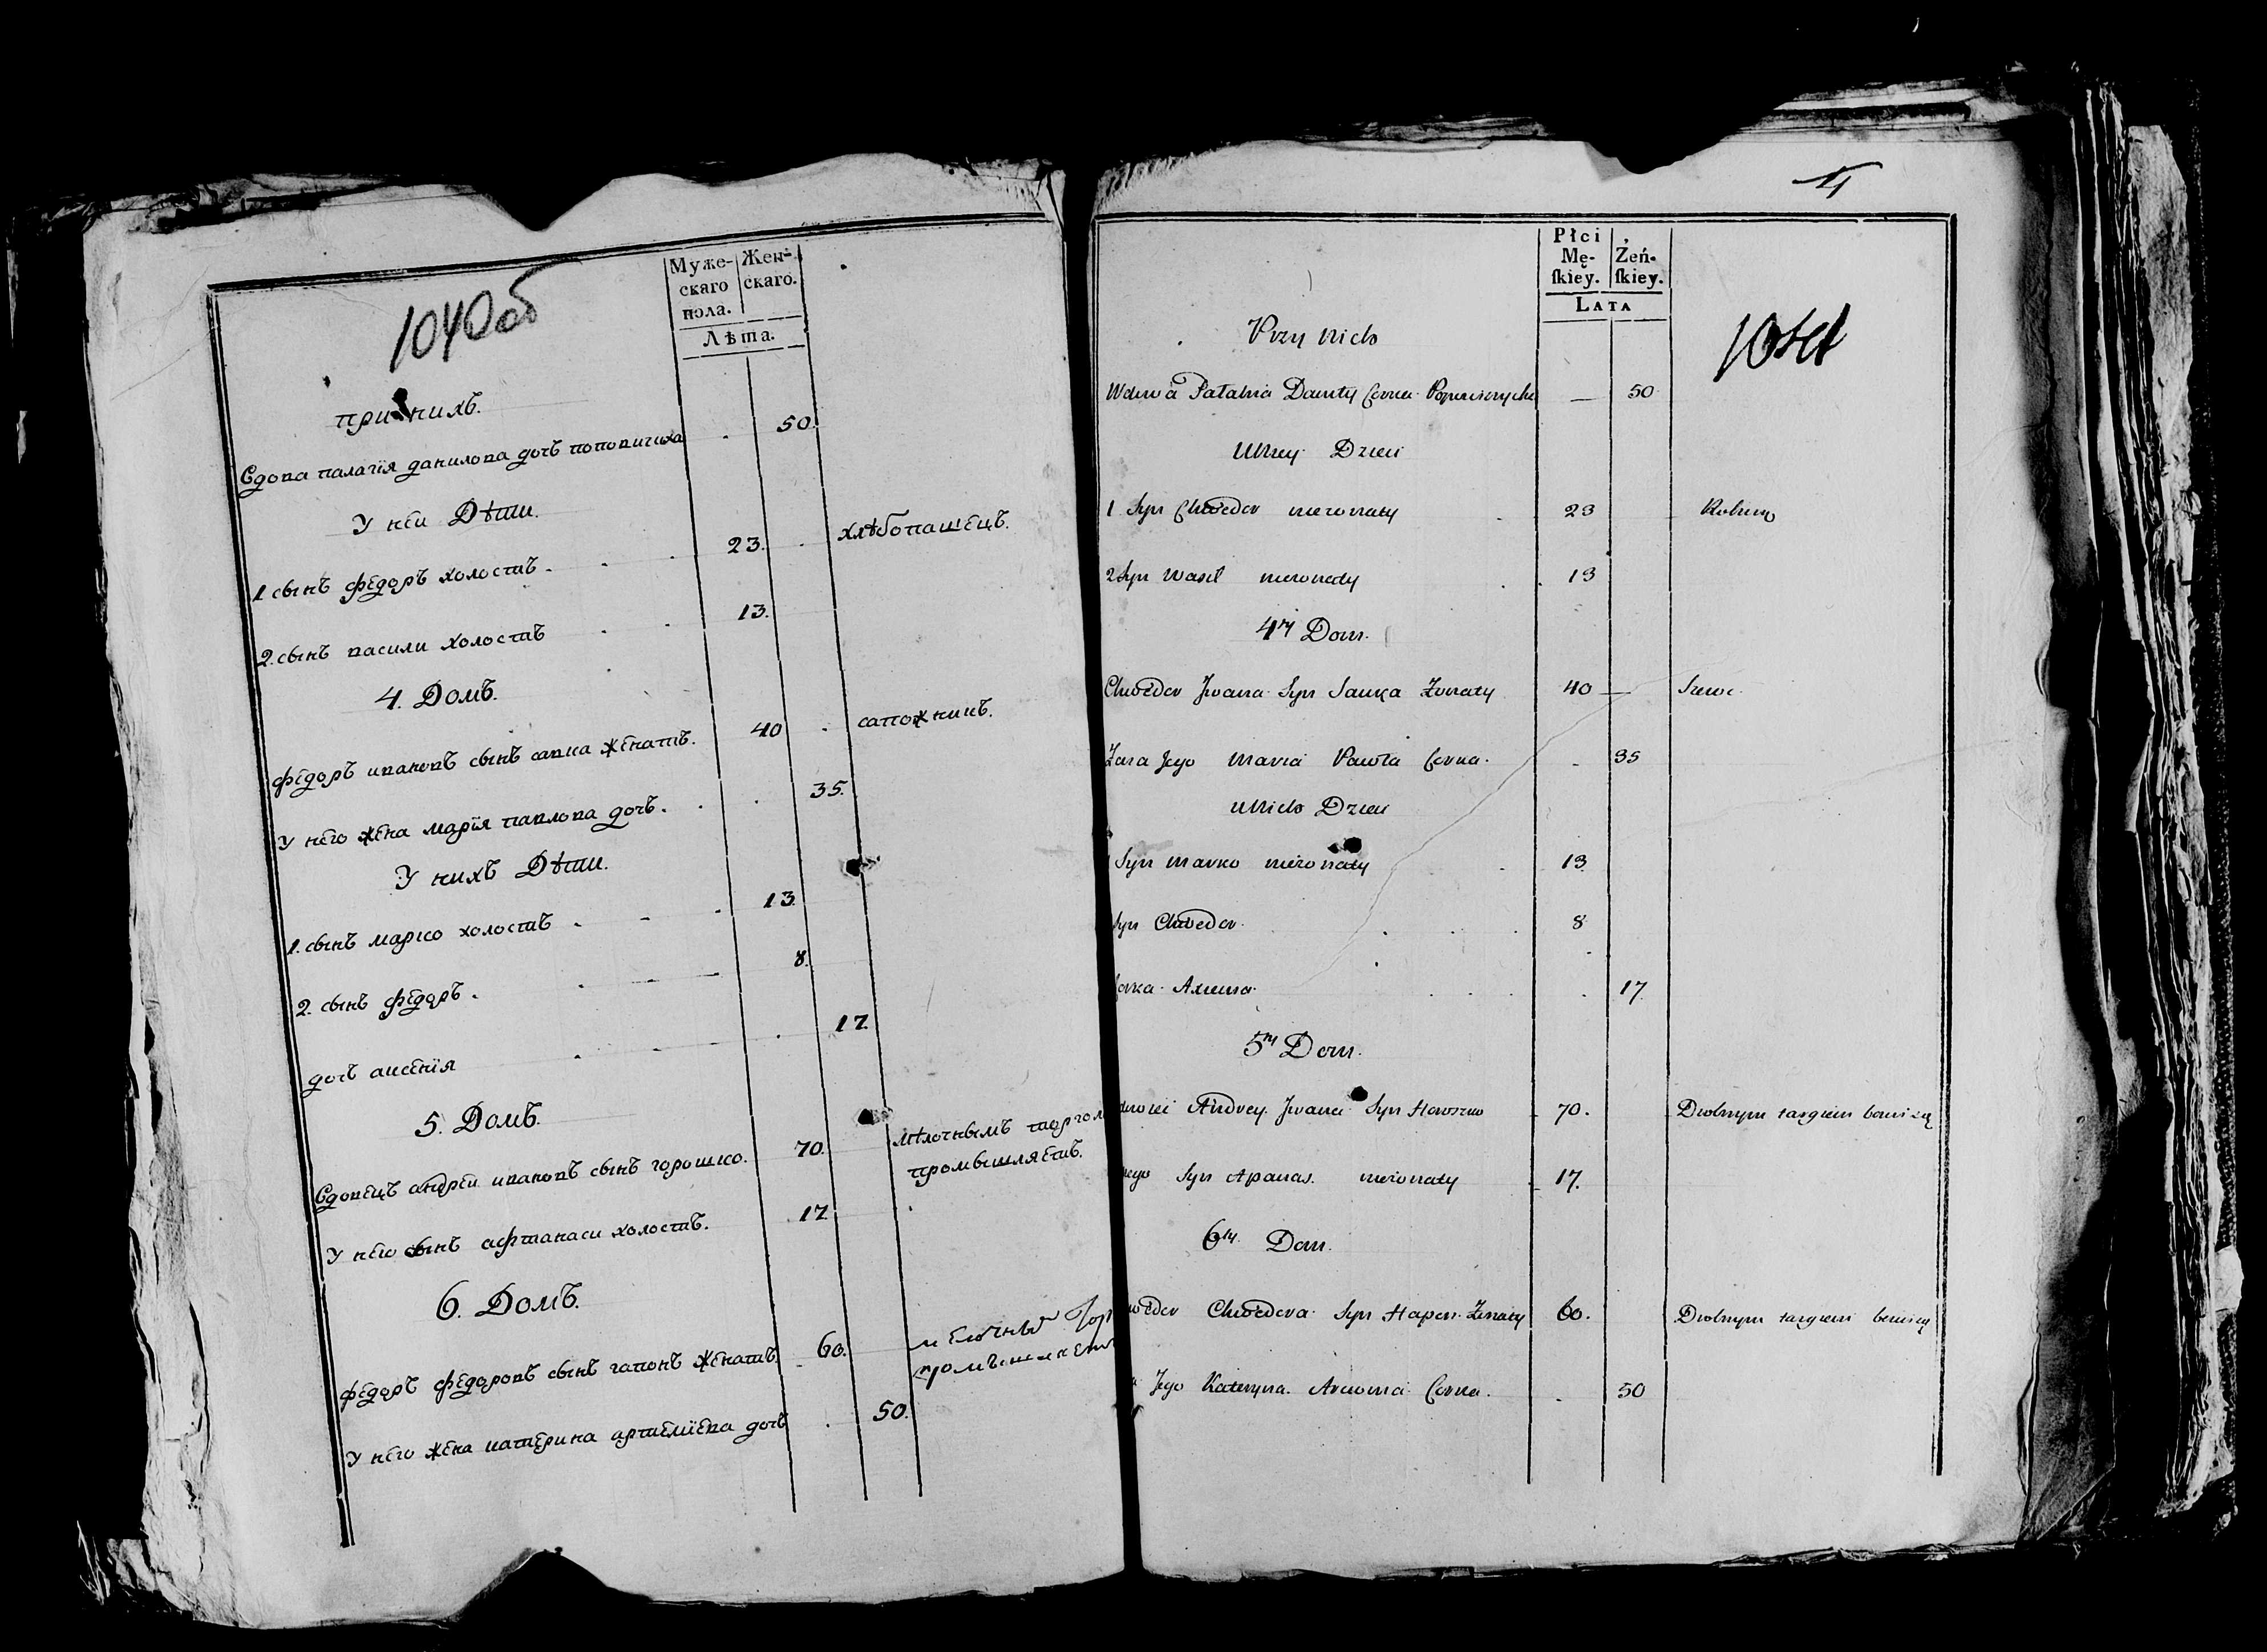 1040об
Муже-
скаго
пола.
Жен-
скаго.
Лѣта.
при нихъ.
Вдова палагія данилова дочъ поповичиха 50.
У неи Дѣти.
1 сынъ федоръ холостъ. 23. хлѣбопашецъ.
2. сынъ василй холостъ 13.
4. Домъ.
федоръ ивановъ сынъ савка женатъ. 40 сапожникъ.
У него жена марія павлова дочъ. 35.
У нихъ Дѣти.
1. сынъ марко холостъ 13.
2. сынъ федоръ. 8.
дочъ аксенія 17.
5. Домъ.
Вдовецъ андреи ивановъ сынъ горошко. 70. мѣлочнымъ торгом
промышляетъ.
У него сынъ афтанаси холостъ. 17.
6. Домъ.
федоръ федоровъ сынъ гапонъ женатъ. 60.
У него жена катерина артемїева дочъ 50.
4
Płci
Mę-
ſkiey.
Żeń-
ſkiey.
LATA
Przy Nich
Wdowa Pałahia Daniły Corka — 50
U Niey Dzieci
1 Syn Chwedor nieżonaty 23
2 Syn Wasil nieżonaty 13
4ty Dom.
Chwedor Jwana Syn Sauka Żonaty 40 — Szewc.
Żona Jego Maria Pawła Corka. 35
U Nich Dzieci
Syn Marko nieżonaty 13
Syn Chwedor. 8
Corka Axienia. 17
5ty Dom.
Andrey Jwana Syn Horoszko 70. Drobnym targiem bawi się
niego Syn Apanas. nieżonaty 17.
6ty Dom.
Chwedora Syn Hapon Żonaty 60. Drobnym targiem bawi się
Jego Kateryna. Corka. 50